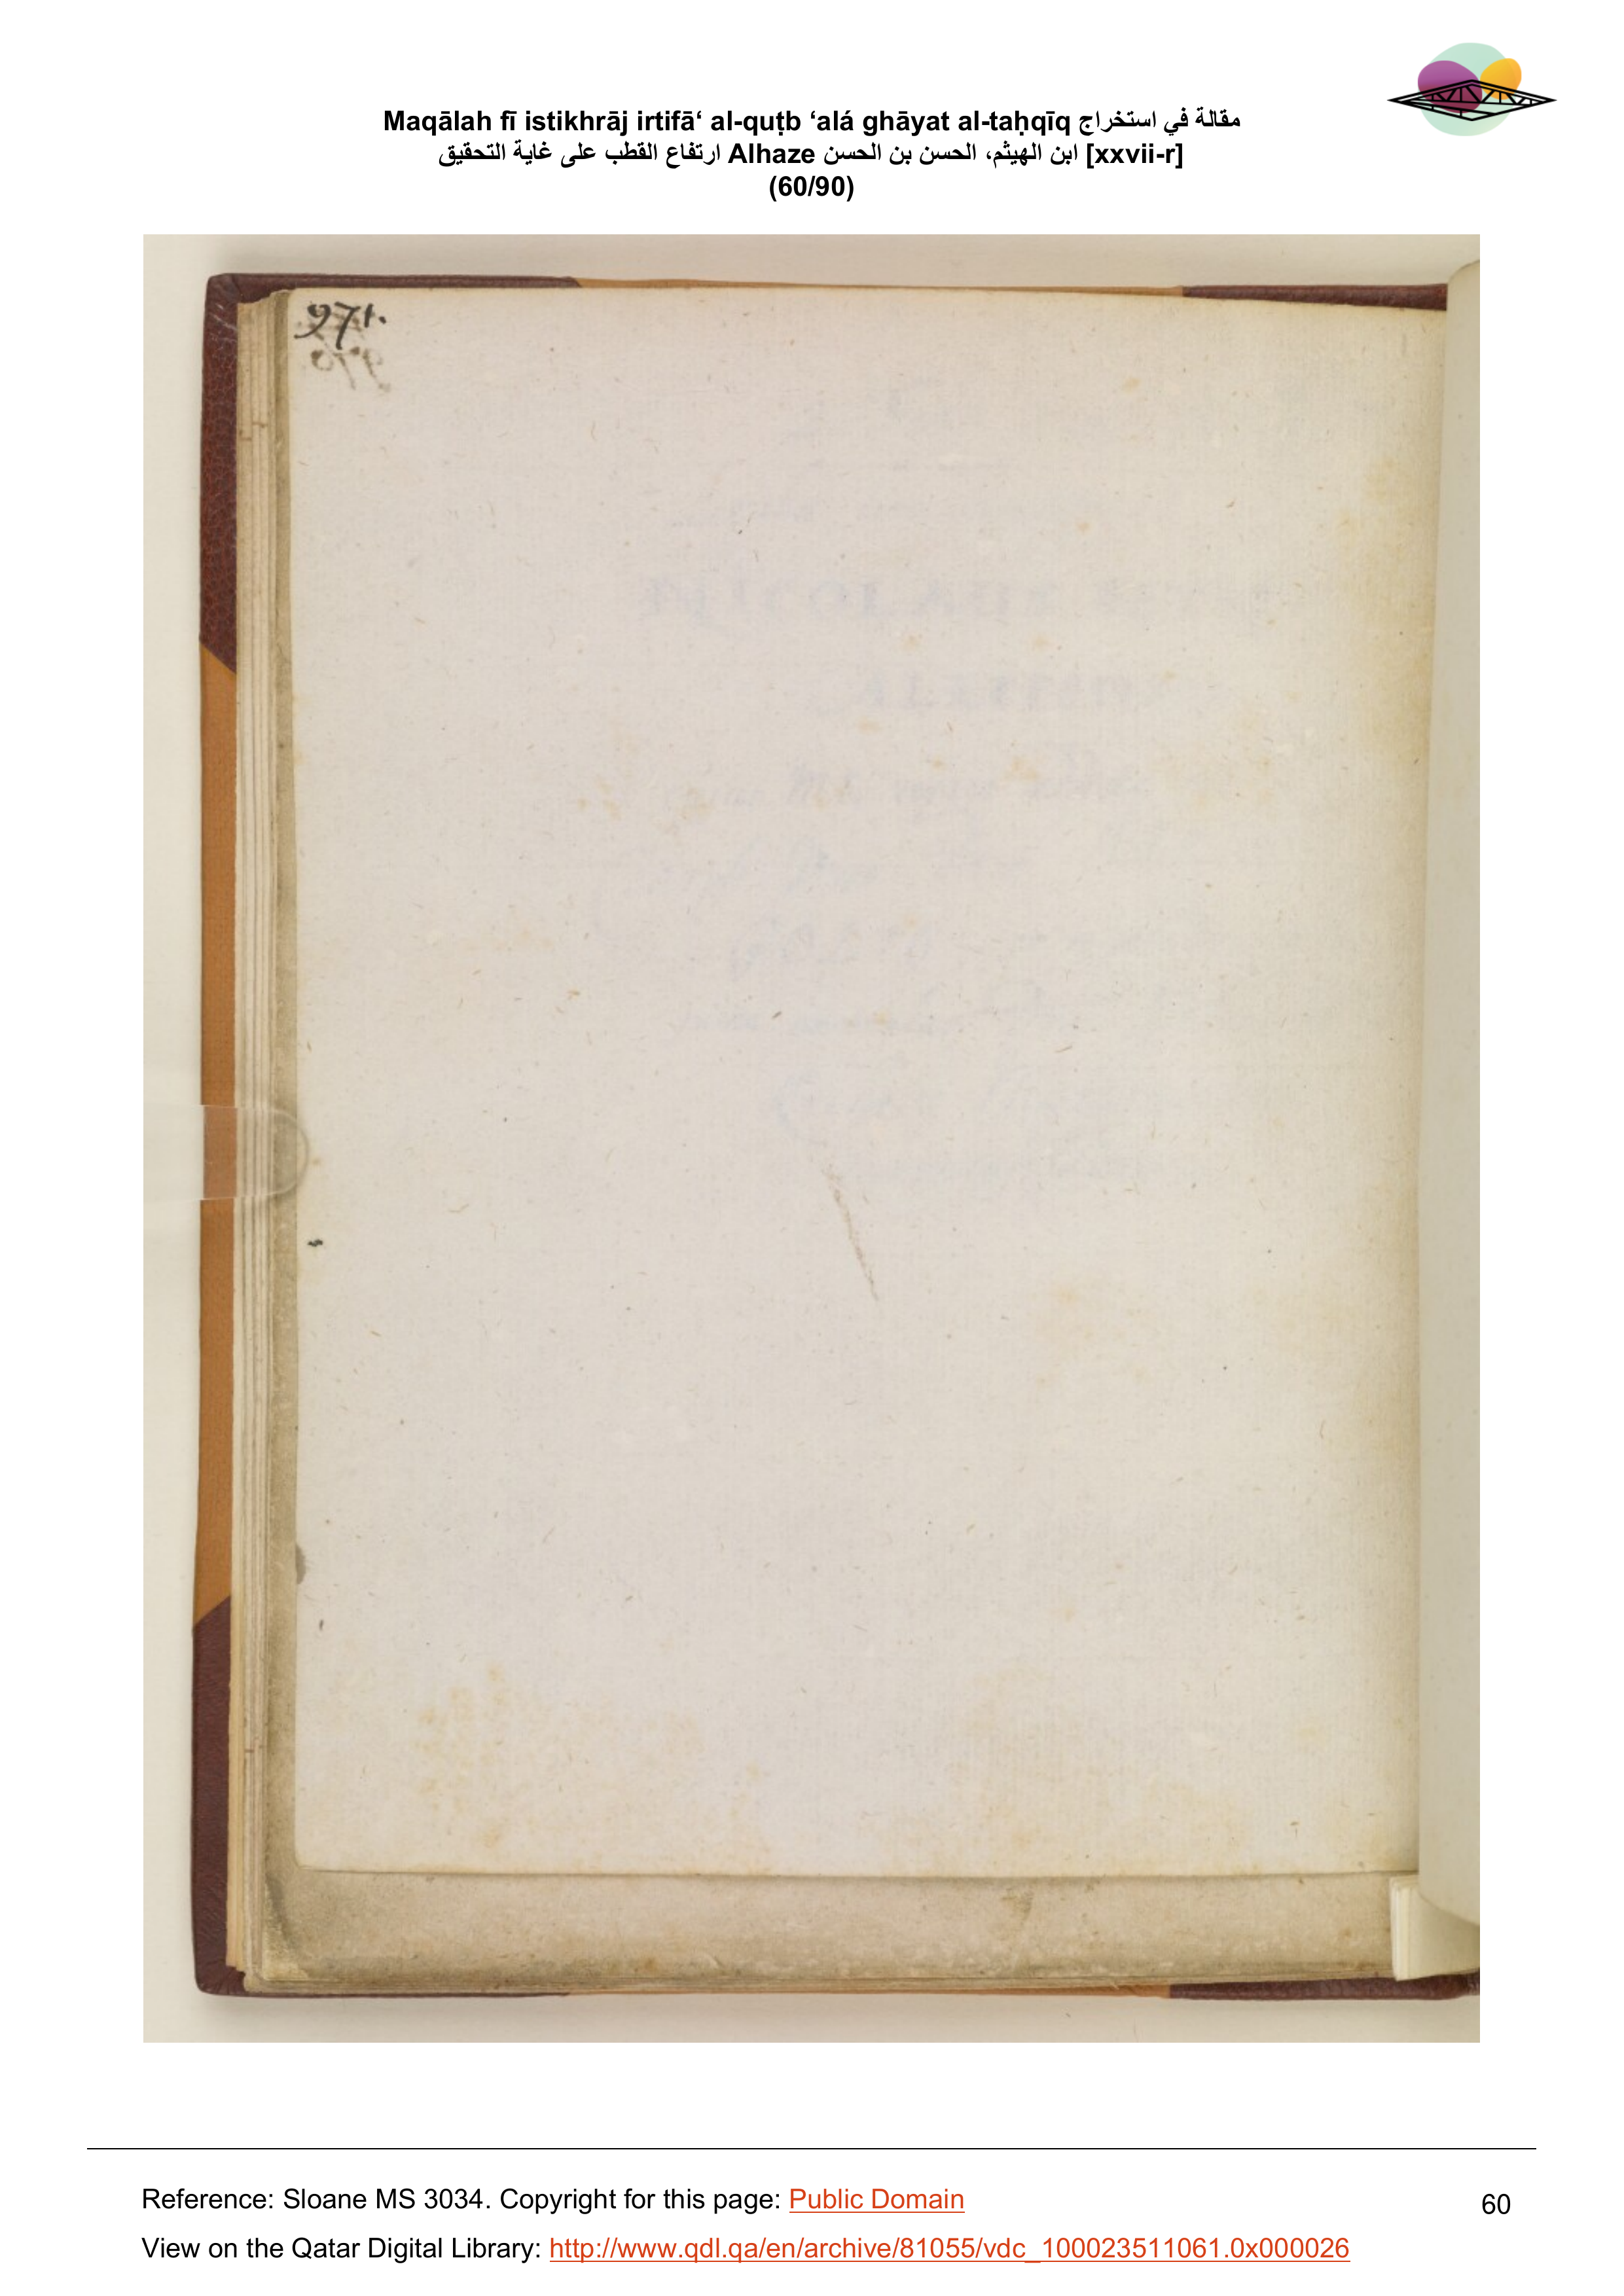 Maqālah fī istikhrāj irtifā‘ al-quṭb ‘alá ghāyat al-taḥqīq مقالة في استخراج
ارتفاع القطب على غاية التحقيق Alhaze ابن الهيثم، الحسن بن الحسن [xxvii-r]
(60/90)
971.
Reference: Sloane MS 3034. Copyright for this page: Public Domain
60
View on the Qatar Digital Library: http://www.qdl.qa/en/archive/81055/vdc_100023511061.0x000026